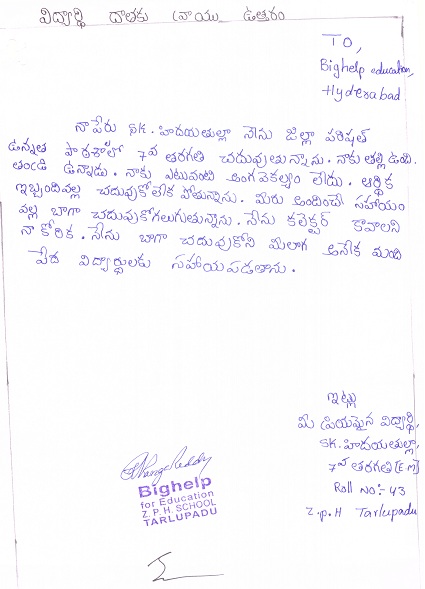 విద్యార్థి దాతకు వ్రాయు ఉత్తరం
TO,
Bighelp education,
Hyderabad
నాపేరు SK. హిదయతుల్లా నేను జిల్లా పరిషత్
ఉన్నత పాఠశాలలో 7వ తరగతి చదువుతున్నాను. నాకు తల్లి ఉంది.
తండ్రి ఉన్నాడు. నాకు ఎటువంటి అంగవైకల్యం లేదు. ఆర్థిక
ఇబ్బందివల్ల చదువుకోలేక పోతున్నాను. మీరు అందించే సహాయం
వల్ల బాగా చదువుకోగలుగుతున్నాను. నేను కలెక్టర్ కావాలని
నా కోరిక. నేను బాగా చదువుకొని మీలాగ అనేక మంది
పేద విద్యార్థులకు సహాయపడతాను.
ఇట్లు
మీ ప్రియమైన విద్యార్థి,
SK. హిదయతుల్లా,
7వ తరగతి (E.M)
Roll No:- 43
Z.P.H Tarlupadu
Bighelp
for Education
Z. P. H. SCHOOL
TARLUPADU